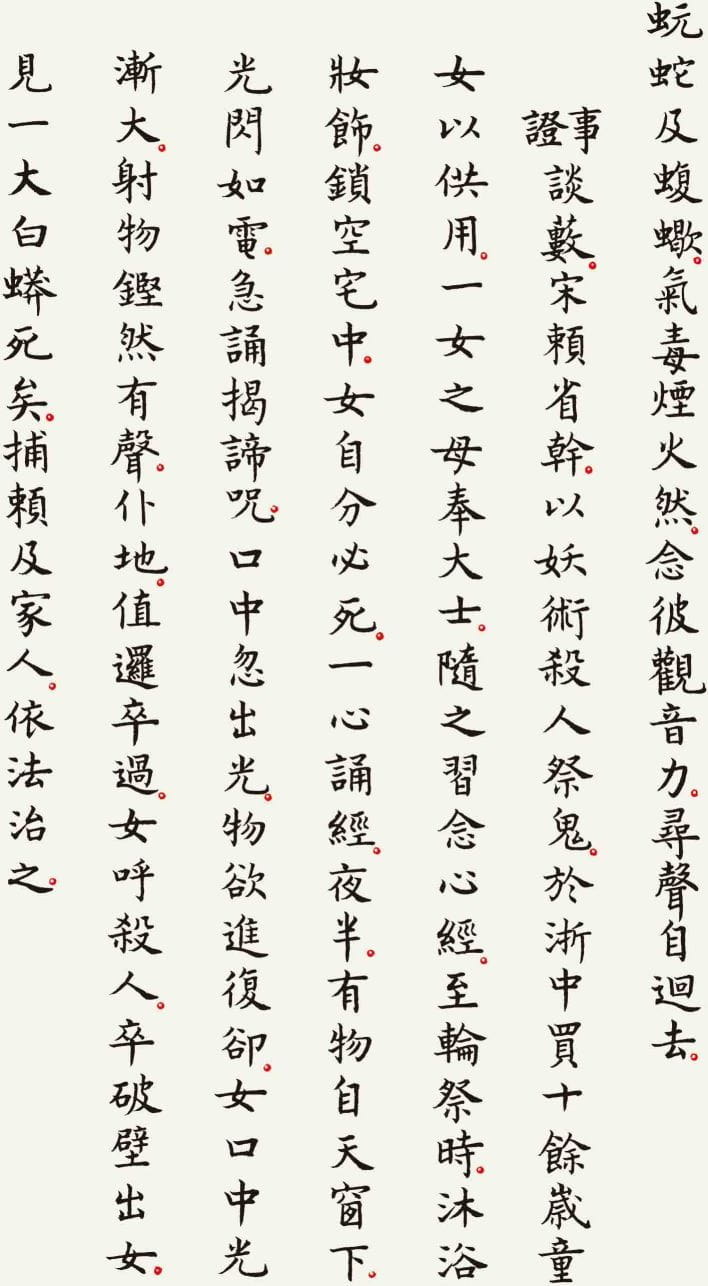 蚖蛇及蝮蠍。氣毒煙火然。念彼觀音力。尋聲自迴去。
事證談藪。宋賴省幹。以妖術殺人祭鬼。於浙中買十餘歲童
女以供用。一女之母奉大士。隨之習念心經。至輪祭時。沐浴
妝飾。鎖空宅中。女自分必死。一心誦經。夜半。有物自天窗下。
光閃如電。急誦揭諦呪。口中忽出光。物欲進復卻。女口中光
漸大。射物鏗然有聲。仆地。值邏卒過。女呼殺人。卒破壁出女。
見一大白蟒死矣。捕賴及家人。依法治之。